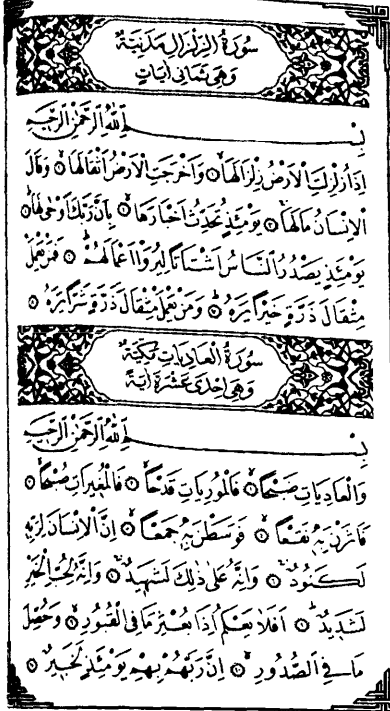 سُورَةُ الزِّلْزَالِ مَدَنِيَّةٌ
وَهِيَ ثَمَانِي اٰيَاتٍ
بِسْــــــمِ اللّٰهِ الرَّحْمٰنِ الرَّحِيمِ
اِذَا زُلْزِلَتِ الْاَرْضُ زِلْزَالَهَا ۞ وَاَخْرَجَتِ الْاَرْضُ اَثْقَالَهَا ۞ وَقَالَ
الْاِنْسَانُ مَالَهَا ۞ يَوْمَئِذٍ تُحَدِّثُ اَخْبَارَهَا ۞ بِاَنَّ رَبَّكَ اَوْحٰى لَهَا ۞
يَوْمَئِذٍ يَصْدُرُ النَّاسُ اَشْتَاتًا لِيُرَوْا اَعْمَالَهُمْ ۞ فَمَنْ يَعْمَلْ
مِثْقَالَ ذَرَّةٍ خَيْرًا يَرَهُ ۞ وَمَنْ يَعْمَلْ مِثْقَالَ ذَرَّةٍ شَرًّا يَرَهُ ۞
سُورَةُ الْعَادِيَاتِ مَكِّيَّةٌ
وَهِيَ اِحْدٰى عَشْرَةَ اٰيَةً
بِسْــــــمِ اللّٰهِ الرَّحْمٰنِ الرَّحِيمِ
وَالْعَادِيَاتِ ضَبْحًا ۞ فَالْمُورِيَاتِ قَدْحًا ۞ فَالْمُغِيرَاتِ صُبْحًا ۞
فَاَثَرْنَ بِهِ نَقْعًا ۞ فَوَسَطْنَ بِهِ جَمْعًا ۞ اِنَّ الْاِنْسَانَ لِرَبِّهِ
لَكَنُودٌ ۞ وَاِنَّهُ عَلٰى ذٰلِكَ لَشَهِيدٌ ۞ وَاِنَّهُ لِحُبِّ الْخَيْرِ
لَشَدِيدٌ ۞ اَفَلَا يَعْلَمُ اِذَا بُعْثِرَ مَا فِي الْقُبُورِ ۞ وَحُصِّلَ
مَا فِي الصُّدُورِ ۞ اِنَّ رَبَّهُمْ بِهِمْ يَوْمَئِذٍ لَخَبِيرٌ ۞